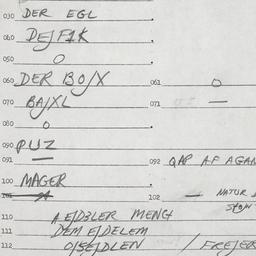 030 DER EGL
040 DEJFIK
050 O
060 DER BOJX 061 O
070 BAJXL 071 —
080 O
090 PUZ
091 — 092 QAP AF AGAN
100 MAGER
101 102 — NATUR
110 A EJD3LER MENG
111 DEM EJDELEM
112 OJSEJDLEN / FREJER